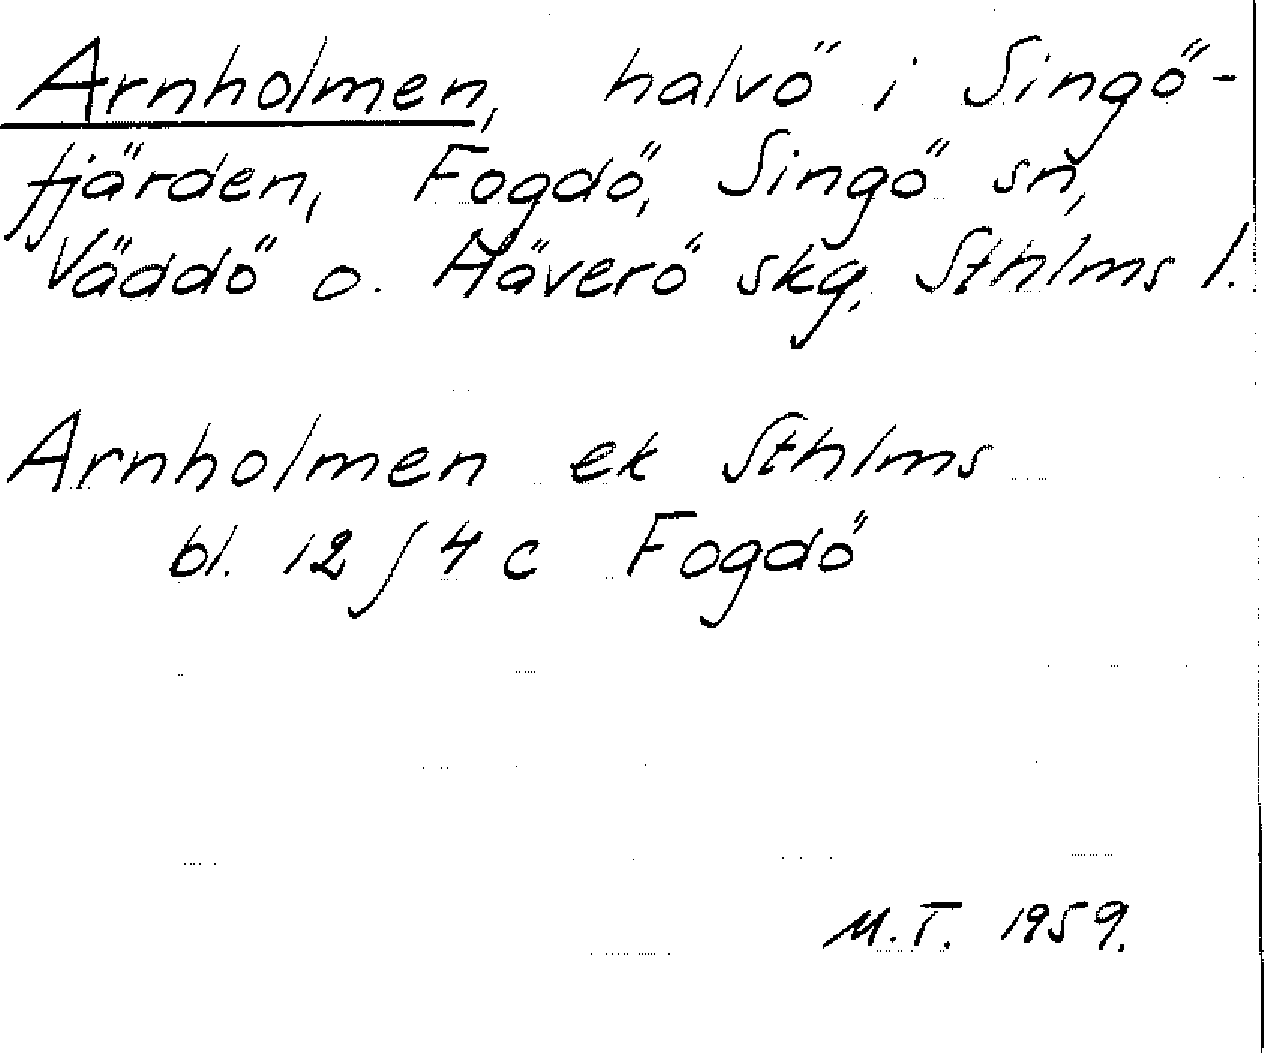 Arnholmen, halvö i Singö-
fjärden, Fogdö, Singö sn,
Väddö o. Häverö skg, Sthlms l.
Arnholmen ek Sthlms
bl. 12 J 4 c Fogdö
M.T. 1959.